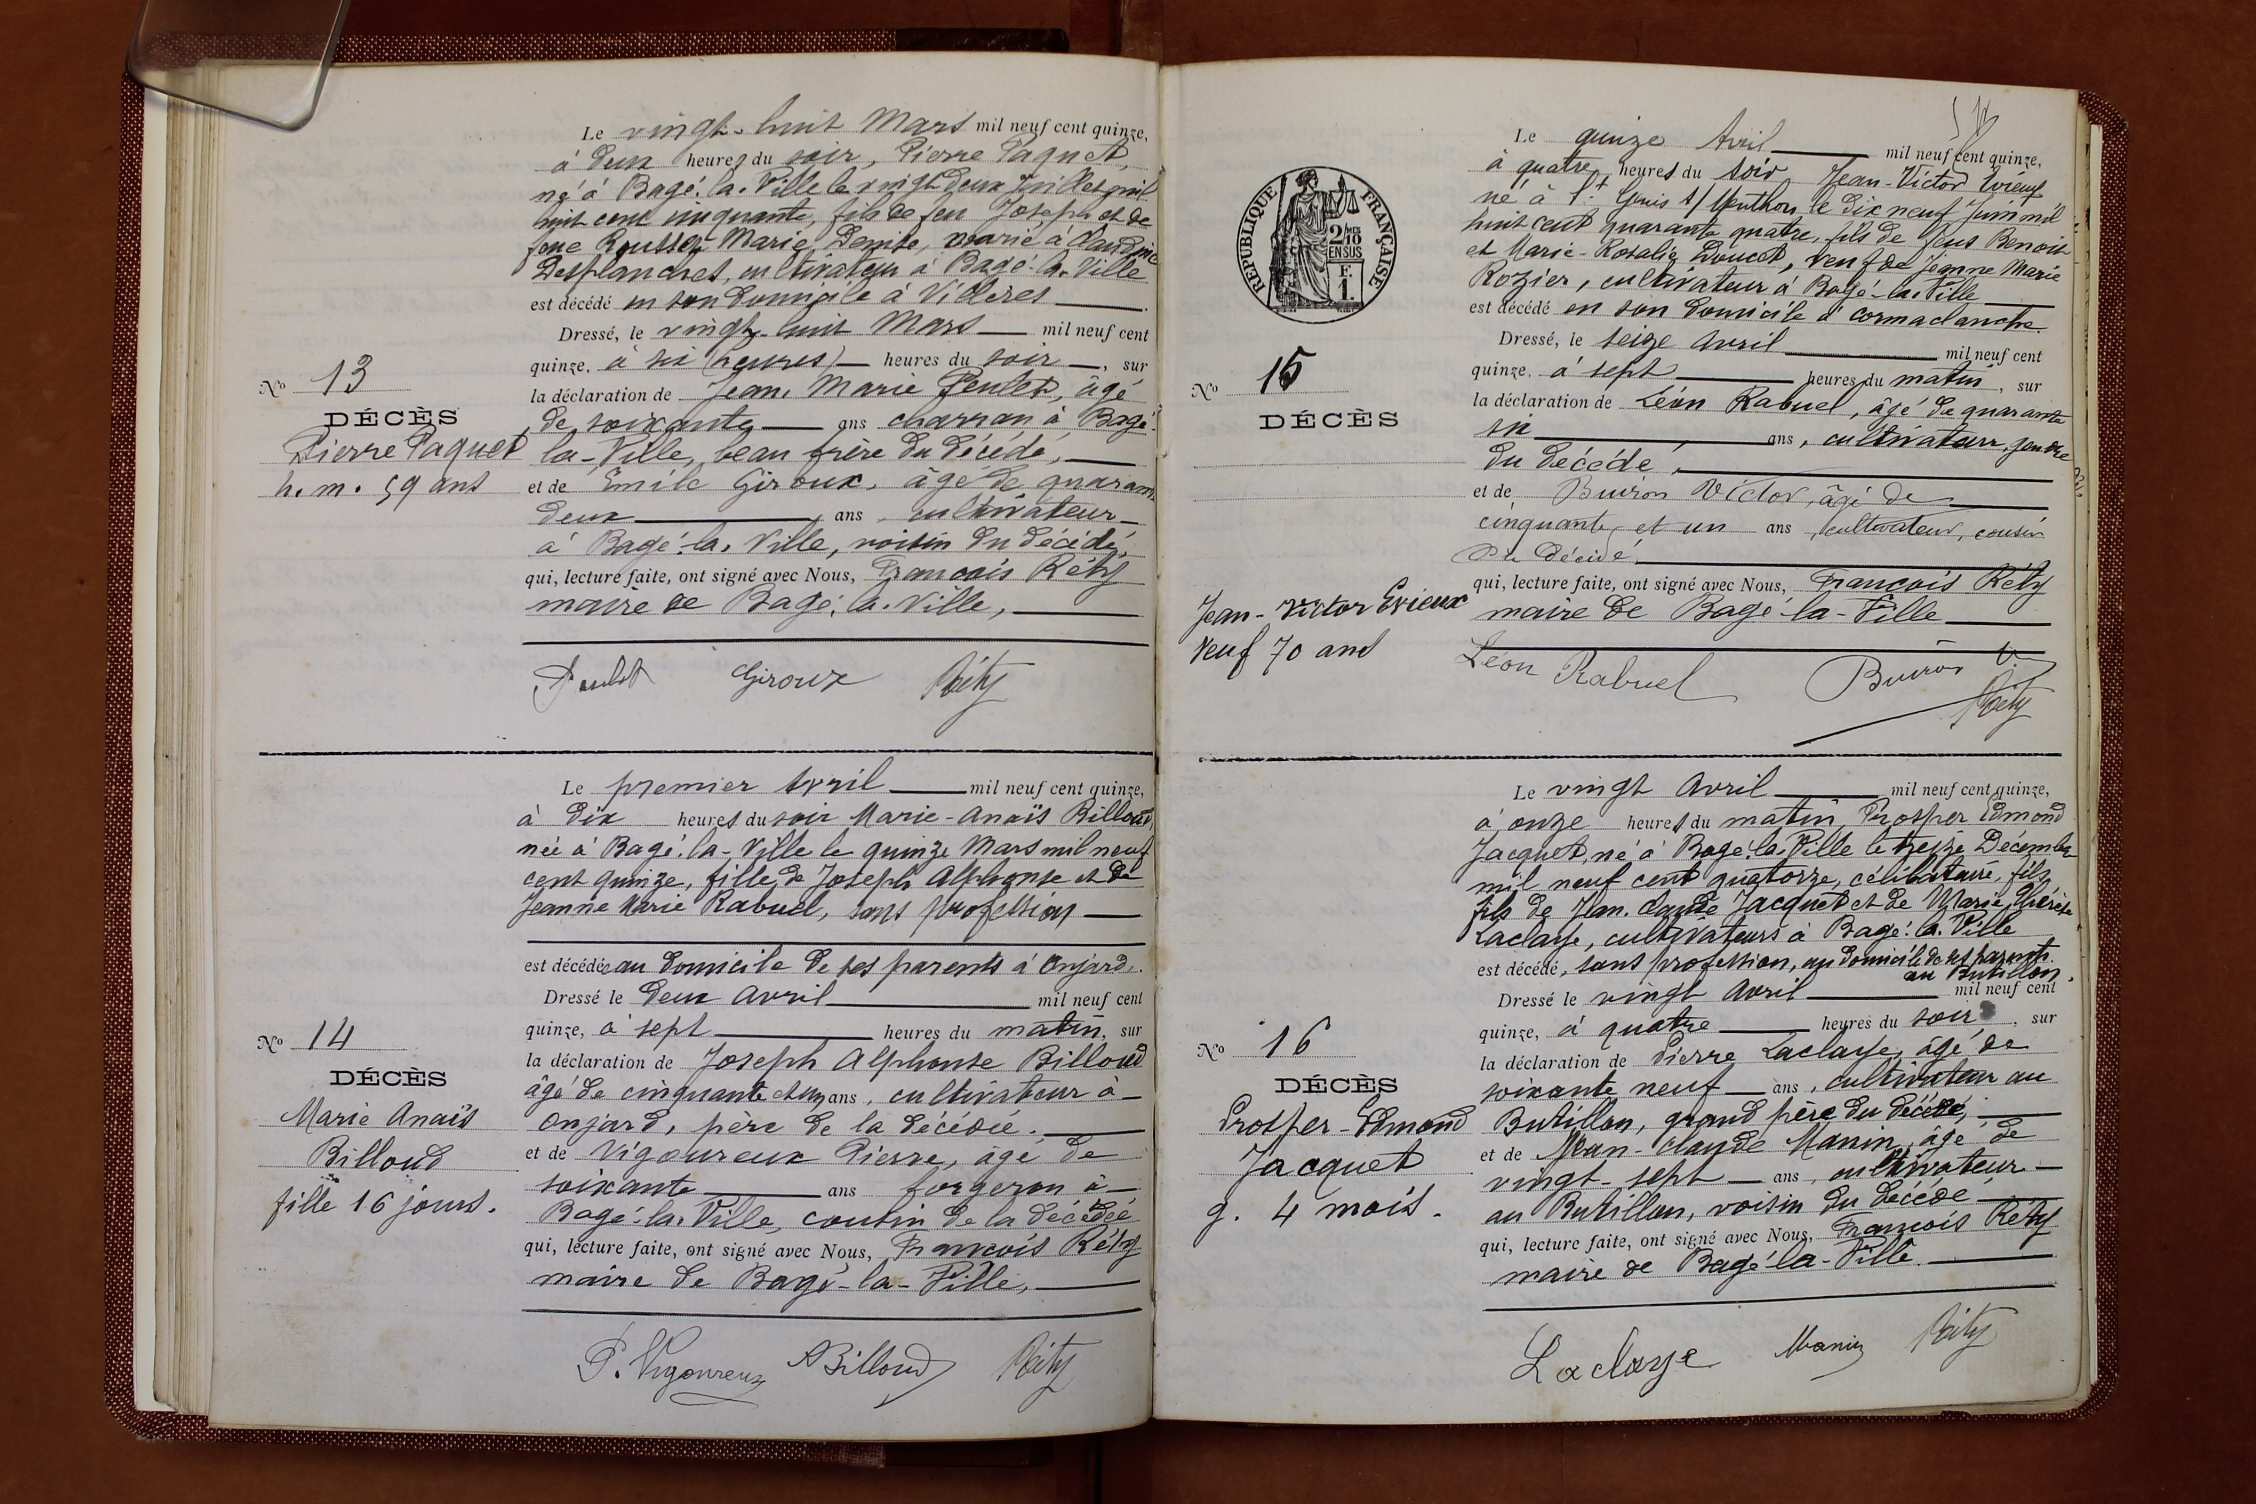 Le vingt-huit Mars mil neuf cent quinze,
à deux heures du soir, Pierre Paquet,
né à Bagé-la-Ville le vingt deux Juillet mil
huit cent cinquante, fils de feu Joseph et de
feue Marie Denise, marié à Claudine
Desplanches, cultivateur à Bagé-la-Ville
est décédé en son domicile à Villeres
Dressé, le vingt-huit Mars mil neuf cent
quinze, à six (heures) heures du soir, sur
la déclaration de Jean Marie Penlet, âgé
de soixante ans charron à Bagé-
la-Ville, beau frère du décédé,
et de Emile Giroux, âgé de quarante
deux ans, cultivateur
à Bagé-la-Ville, voisin du décédé,
qui, lecture faite, ont signé avec Nous, François Réty
maire de Bagé-la-Ville,
Giroux Réty
No 13
DÉCÈS
Pierre Paquet
h. m. 59 ans
Le premier Avril mil neuf cent quinze,
à dix heures du soir Marie-Anaïs Billoud,
née à Bagé-la-Ville le quinze Mars mil neuf
cent quinze, fille de Joseph Alphonse et de
Jeanne Marie Rabuel, sans profession
est décédée au domicile de ses parents à Onjard.
Dressé le deux Avril mil neuf cent
quinze, à sept heures du matin, sur
la déclaration de Joseph Alphonse Billoud
âgé de cinquante et un ans, cultivateur à
Onjard, père de la décédée.
et de Vigoureux Pierre, âgé de
soixante ans forgeron à
Bagé-la-Ville, cousin de la décédée
qui, lecture faite, ont signé avec Nous, François Réty
maire de Bagé-la-Ville,
P. Vigoureux ABilloud Réty
No 14
DÉCÈS
Marie Anaïs
Billoud
fille 16 jours.
RÉPUBLIQUE FRANÇAISE
2/10 MES
EN SUS
F.
1.
Le quinze Avril mil neuf cent quinze,
à quatre heures du soir Jean-Victor Evieux
né à St. Genis s/ Menthon, le dix neuf Juin mil
huit cent quarante quatre, fils de feus Benoit
et Marie-Rosalie Doucet, veuf de Jeanne Marie
Rozier, cultivateur à Bagé-la-Ville
est décédé en son domicile à Cormaclanche.
Dressé, le seize Avril mil neuf cent
quinze, à sept heures du matin, sur
la déclaration de Léon Rabuel, âgé de quarante
six ans, cultivateur, gendre
du décédé,
et de Buiron Victor, âgé de
cinquante et un ans, cultivateur, cousin
du décédé
qui, lecture faite, ont signé avec Nous, François Réty
maire de Bagé-la-Ville
Léon Rabuel Buiron V. Réty
No 15
DÉCÈS
Jean-Victor Evieux
Veuf 70 ans
Le vingt Avril mil neuf cent quinze,
à onze heures du matin, Prosper Edmond
Jacquet, né à Bagé-la-Ville le treize Décembre
mil neuf cent quatorze, célibataire, fils
fils de Jean Claude Jacquet et de Marie Thérèse
Laclaye, cultivateurs à Bagé-la-Ville
est décédé, sans profession, au domicile de ses parents
au Butillon.
Dressé le vingt Avril mil neuf cent
quinze, à quatre heures du soir, sur
la déclaration de Pierre Laclaye, âgé de
soixante neuf ans, cultivateur au
Butillon, grand père du décédé,
et de Jean-Claude Manin, âgé de
vingt-sept ans, cultivateur
au Butillon, voisin du décédé
qui, lecture faite, ont signé avec Nous, François Réty
maire de Bagé-la-Ville.
Laclaye Manin Réty
No 16
DÉCÈS
Prosper-Edmond
Jacquet
g. 4 mois.